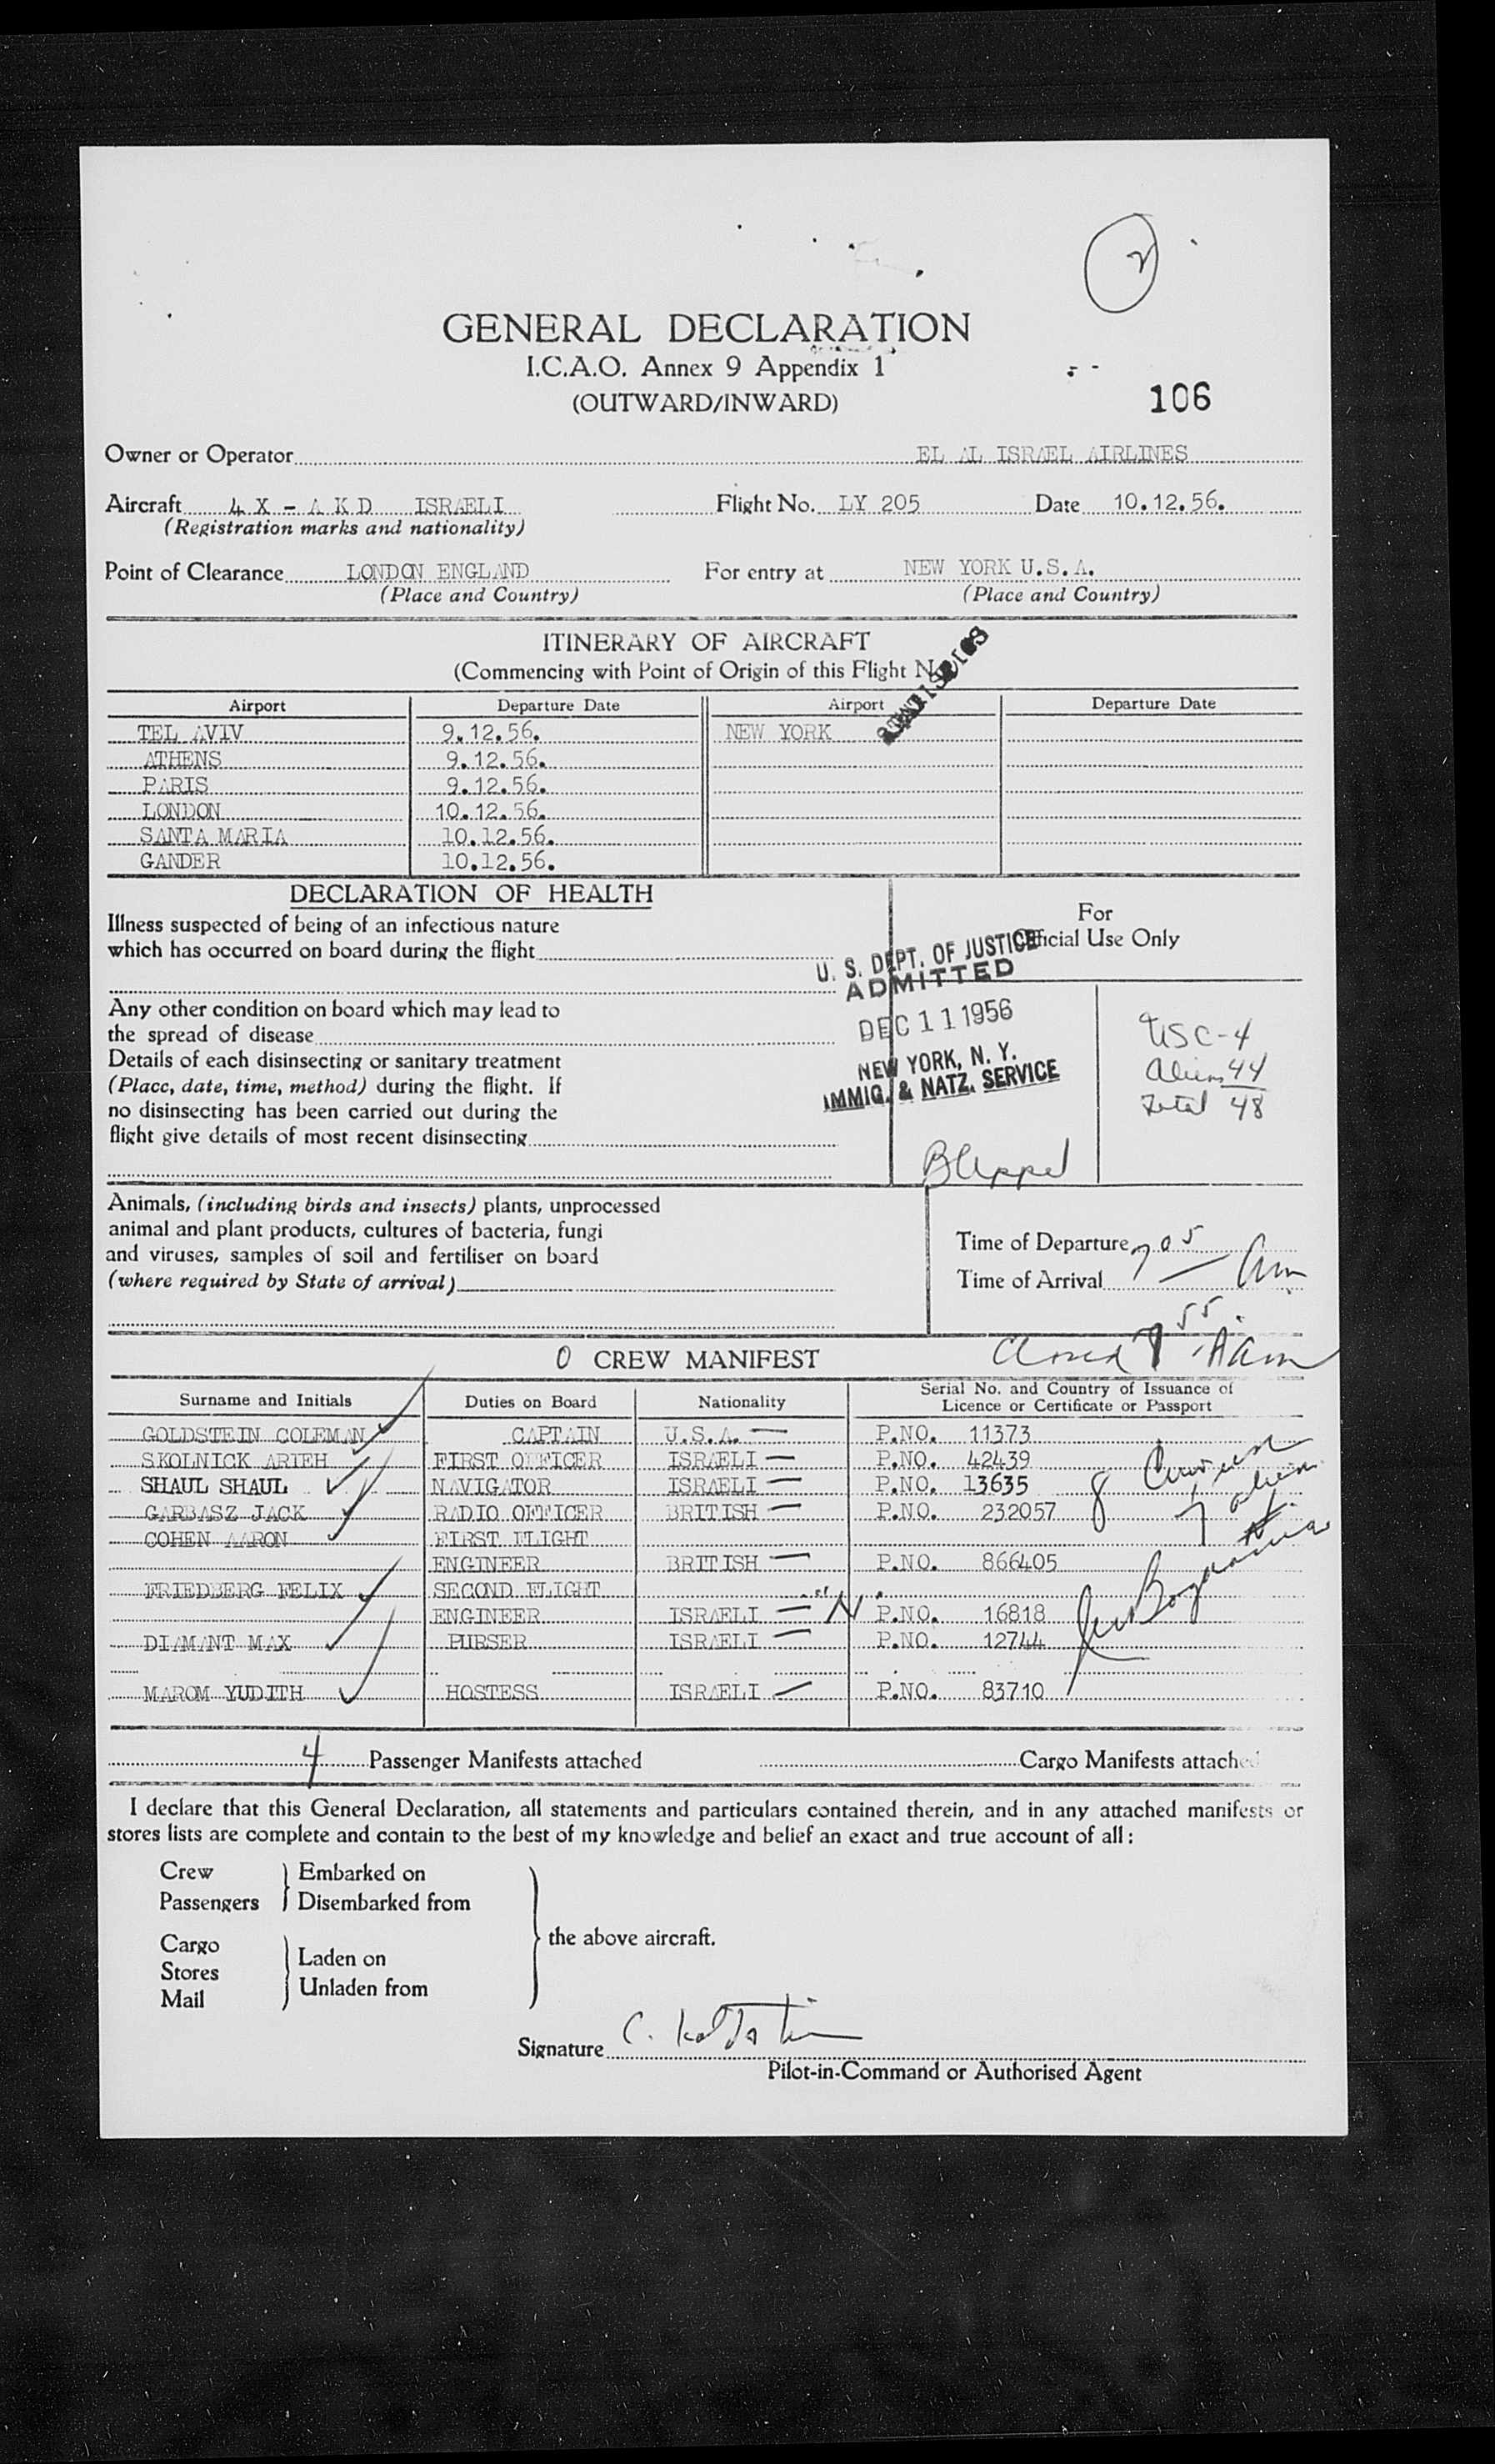 2
GENERAL DECLARATION
I.C.A.O. Annex 9 Appendix 1
(OUTWARD/INWARD)
106
Owner or Operator EL AL ISRAEL AIRLINES
Aircraft 4 X - A K D ISRAELI Flight No. LY 205 Date 10.12.56.
(Registration marks and nationality)
Point of Clearance LONDON ENGLAND For entry at NEW YORK U.S.A.
(Place and Country) (Place and Country)
ITINERARY OF AIRCRAFT
(Commencing with Point of Origin of this Flight
Airport Departure Date Airport Departure Date
TEL AVIV 9.12.56. NEW YORK
ATHENS 9.12.56.
PARIS 9.12.56.
LONDON 10.12.56.
SANTA MARIA 10.12.56.
GANDER 10.12.56.
DECLARATION OF HEALTH
Illness suspected of being of an infectious nature
which has occurred on board during the flight
Any other condition on board which may lead to
the spread of disease
Details of each disinsecting or sanitary treatment
(Place, date, time, method) during the flight. If
no disinsecting has been carried out during the
flight give details of most recent disinsecting
For
Official Use Only
U. S. DEPT. OF JUSTICE
ADMITTED
DEC 11 1956
NEW YORK, N. Y.
IMMIG. & NATZ. SERVICE
USC-4
Aliens 44
Total 48
Animals, (including birds and insects) plants, unprocessed
animal and plant products, cultures of bacteria, fungi
and viruses, samples of soil and fertiliser on board
(where required by State of arrival)
Time of Departure 705
Time of Arrival am
55
0 CREW MANIFEST
Surname and Initials Duties on Board Nationality Serial No. and Country of Issuance of
Licence or Certificate or Passport
GOLDSTEIN COLEMAN CAPTAIN U.S.A. P.NO. 11373
SKOLNICK ARIEH FIRST OFFICER ISRAELI P.NO. 42439
SHAUL SHAUL NAVIGATOR ISRAELI P.NO. 13635
GARBASZ JACK RADIO OFFICER BRITISH P.NO. 232057
COHEN AARON FIRST FLIGHT
ENGINEER BRITISH P.NO. 866405
FRIEDBERG FELIX SECOND FLIGHT
ENGINEER ISRAELI P.NO. 16818
DIAMANT MAX PURSER ISRAELI P.NO. 12744
MAROM YUDITH HOSTESS ISRAELI P.NO. 83710
8 Crewmen
7 alien
4 Passenger Manifests attached Cargo Manifests attached
I declare that this General Declaration, all statements and particulars contained therein, and in any attached manifests or
stores lists are complete and contain to the best of my knowledge and belief an exact and true account of all :
Crew Embarked on
Passengers Disembarked from
the above aircraft.
Cargo
Stores Laden on
Mail Unladen from
Signature C. Goldstein
Pilot-in-Command or Authorised Agent